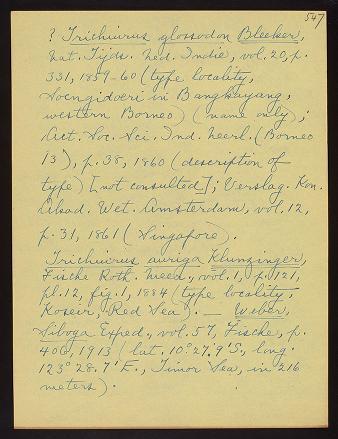 547
? Trichiurus glossodon Bleeker,
Nat. Tijds. Ned. Indie, vol. 20, p.
331, 1859-60 (type locality,
Soengidoeri in Bangkayang,
western Borneo) (name only);
Act. Soc. Sci. Ind. Neerl. (Borneo
13), p. 38, 1860 (description of
type) [not consulted]; Verslag. Kon.
Akad. Wet. Amsterdam, vol. 12,
p. 31, 1861 (Singapore).
Trichiurus auriga Klunzinger,
Fische Roth. Meer., vol. 1, p. 121,
pl. 12, fig. 1, 1884 (type locality,
Koseir, Red Sea). — Weber,
Siboga Exped., vol. 57, Fische, p.
406, 1913 (lat. 10° 27.9' S., long.
123° 28.7' E., Timor Sea, in 216
meters).